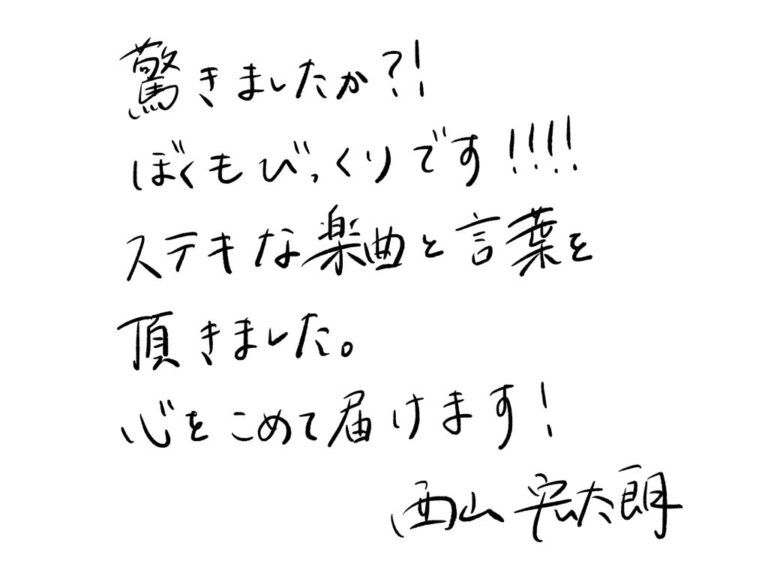 驚きましたか?!
ぼくもびっくりです!!!!
ステキな楽曲と言葉を
頂きました。
心をこめて届けます!
西山宏太朗